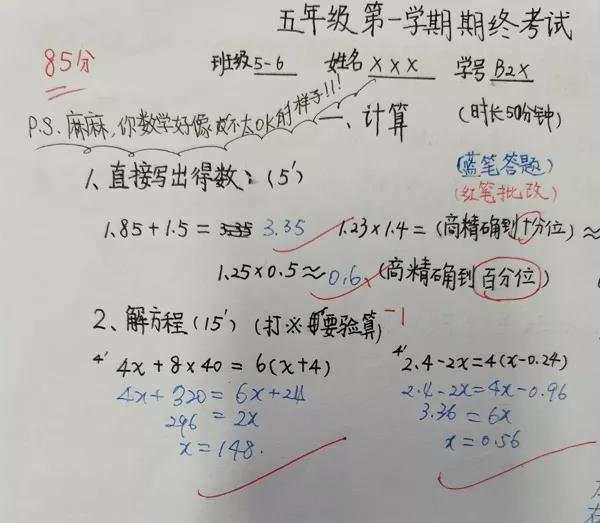 五年级第一学期期终考试
85分
班级5-6 姓名XXX 学号B2X
P.S.麻麻,你数学好像 不太OK的样子!!!
一、计算 (时长50分钟)
(蓝笔答题)
(红笔批改)
1、直接写出得数:(5′)
1.85+1.5= 3.35 1.23×1.4=(商精确到十分位)≈
1.25×0.5≈0.6 (商精确到百分位)
2、解方程(15′)(打※ 要验算) -1
4′ 4x+8×40=6(x+4) 4′ 2.4-2x=4(x-0.24)
4x+320=6x+24 2.4-2x=4x-0.96
296=2x 3.36=6x
x=148. x=0.56